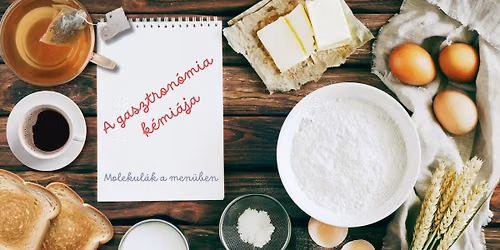 A gasztronómia
kémiája
Molekulák a menüben